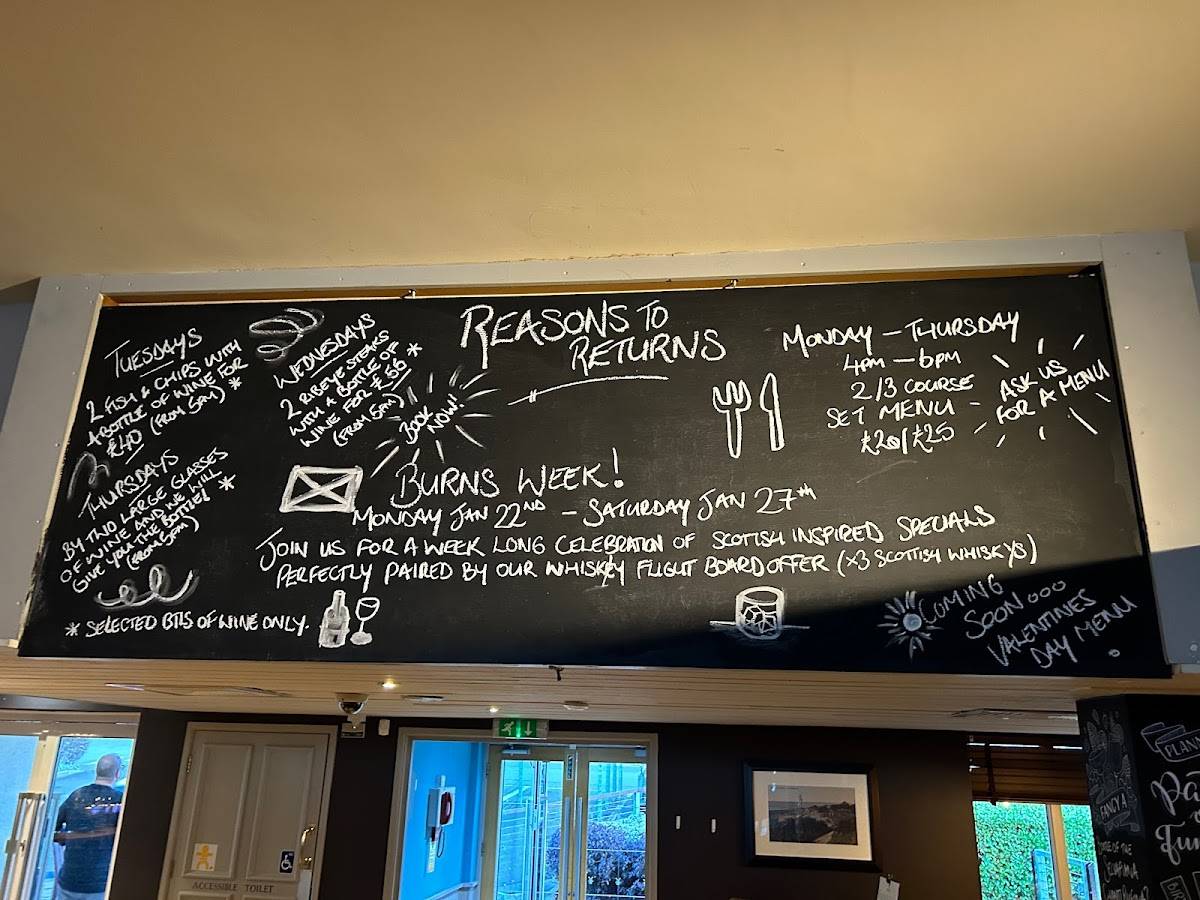 REASONS TO
RETURNS
TUESDAYS
2 FISH & CHIPS WITH
A BOTTLE OF WINE FOR
£40 (FROM 5PM) *
WEDNESDAYS
2 RIBEYE STEAKS
WITH A BOTTLE OF
WINE FOR £56 *
(FROM 5PM)
BOOK
NOW!
MONDAY - THURSDAY
4PM - 6PM
2/3 COURSE
SET MENU -
£20/£25
ASK US
FOR A MENU
THURSDAYS
BY TWO LARGE GLASSES
OF WINE AND WE WILL
GIVE YOU THE BOTTLE! *
(FROM 5PM)
BURNS WEEK!
MONDAY JAN 22ND - SATURDAY JAN 27TH
JOIN US FOR A WEEK LONG CELEBRATION OF SCOTISH INSPIRED SPECIALS
PERFECTLY PAIRED BY OUR WHISKEY FLIGHT BOARD OFFER (x3 SCOTTISH WHISKYS)
* SELECTED BTLS OF WINE ONLY.
COMING
SOON...
VALENTINES
DAY MENU
ACCESSIBLE TOILET
FANCY A